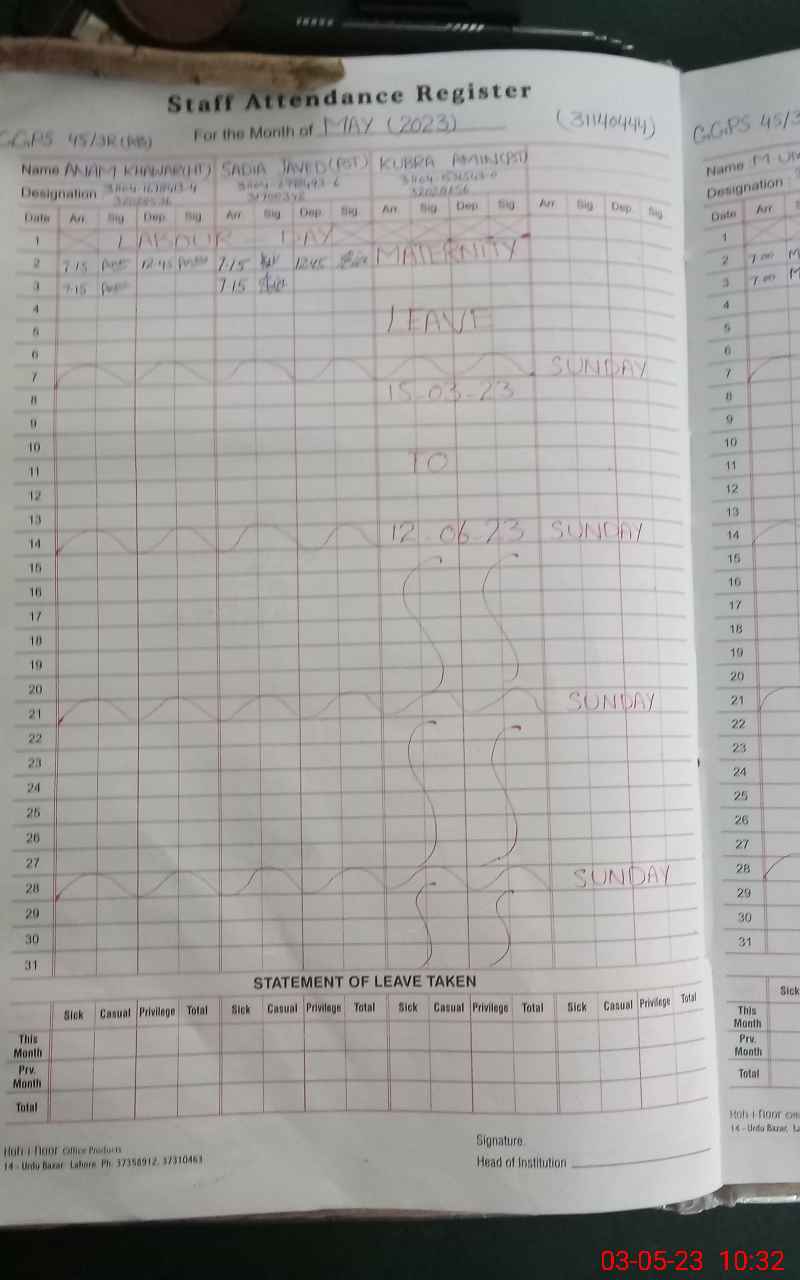 Staff Attendance Register
G.G.P.S 45/3R For the Month of MAY (2023) (31140444)
Name ANAM KHAWAR(HT) SADIA JAVED(PST) KUBRA AMIN(PST)
Designation
Date Arr. Sig. Dep. Sig. Arr. Sig. Dep. Sig. Arr. Sig. Dep. Sig. Arr. Sig. Dep. Sig.
1 LABOUR DAY
2 7:15 12:45 7:15 12:45 MATERNITY
3 7:15 7:15
4
5 LEAVE
6
7 SUNDAY
8 15-03-23
9
10
11 TO
12
13
14 12-06-23 SUNDAY
15
16
17
18
19
20
21 SUNDAY
22
23
24
25
26
27
28 SUNDAY
29
30
31
STATEMENT OF LEAVE TAKEN
Sick Casual Privilege Total Sick Casual Privilege Total Sick Casual Privilege Total Sick Casual Privilege Total
This Month
Prv. Month
Total
Signature.
Head of Institution
Office Products
14 - Urdu Bazar, Lahore. Ph: 37358912, 37310463
G.G.P.S 45/3
Name M
Designation
Date Arr
1
2 7:00
3 7:00
4
5
6
7
8
9
10
11
12
13
14
15
16
17
18
19
20
21
22
23
24
25
26
27
28
29
30
31
Sick
This Month
Prv. Month
Total
14 - Urdu Bazar,
03-05-23 10:32